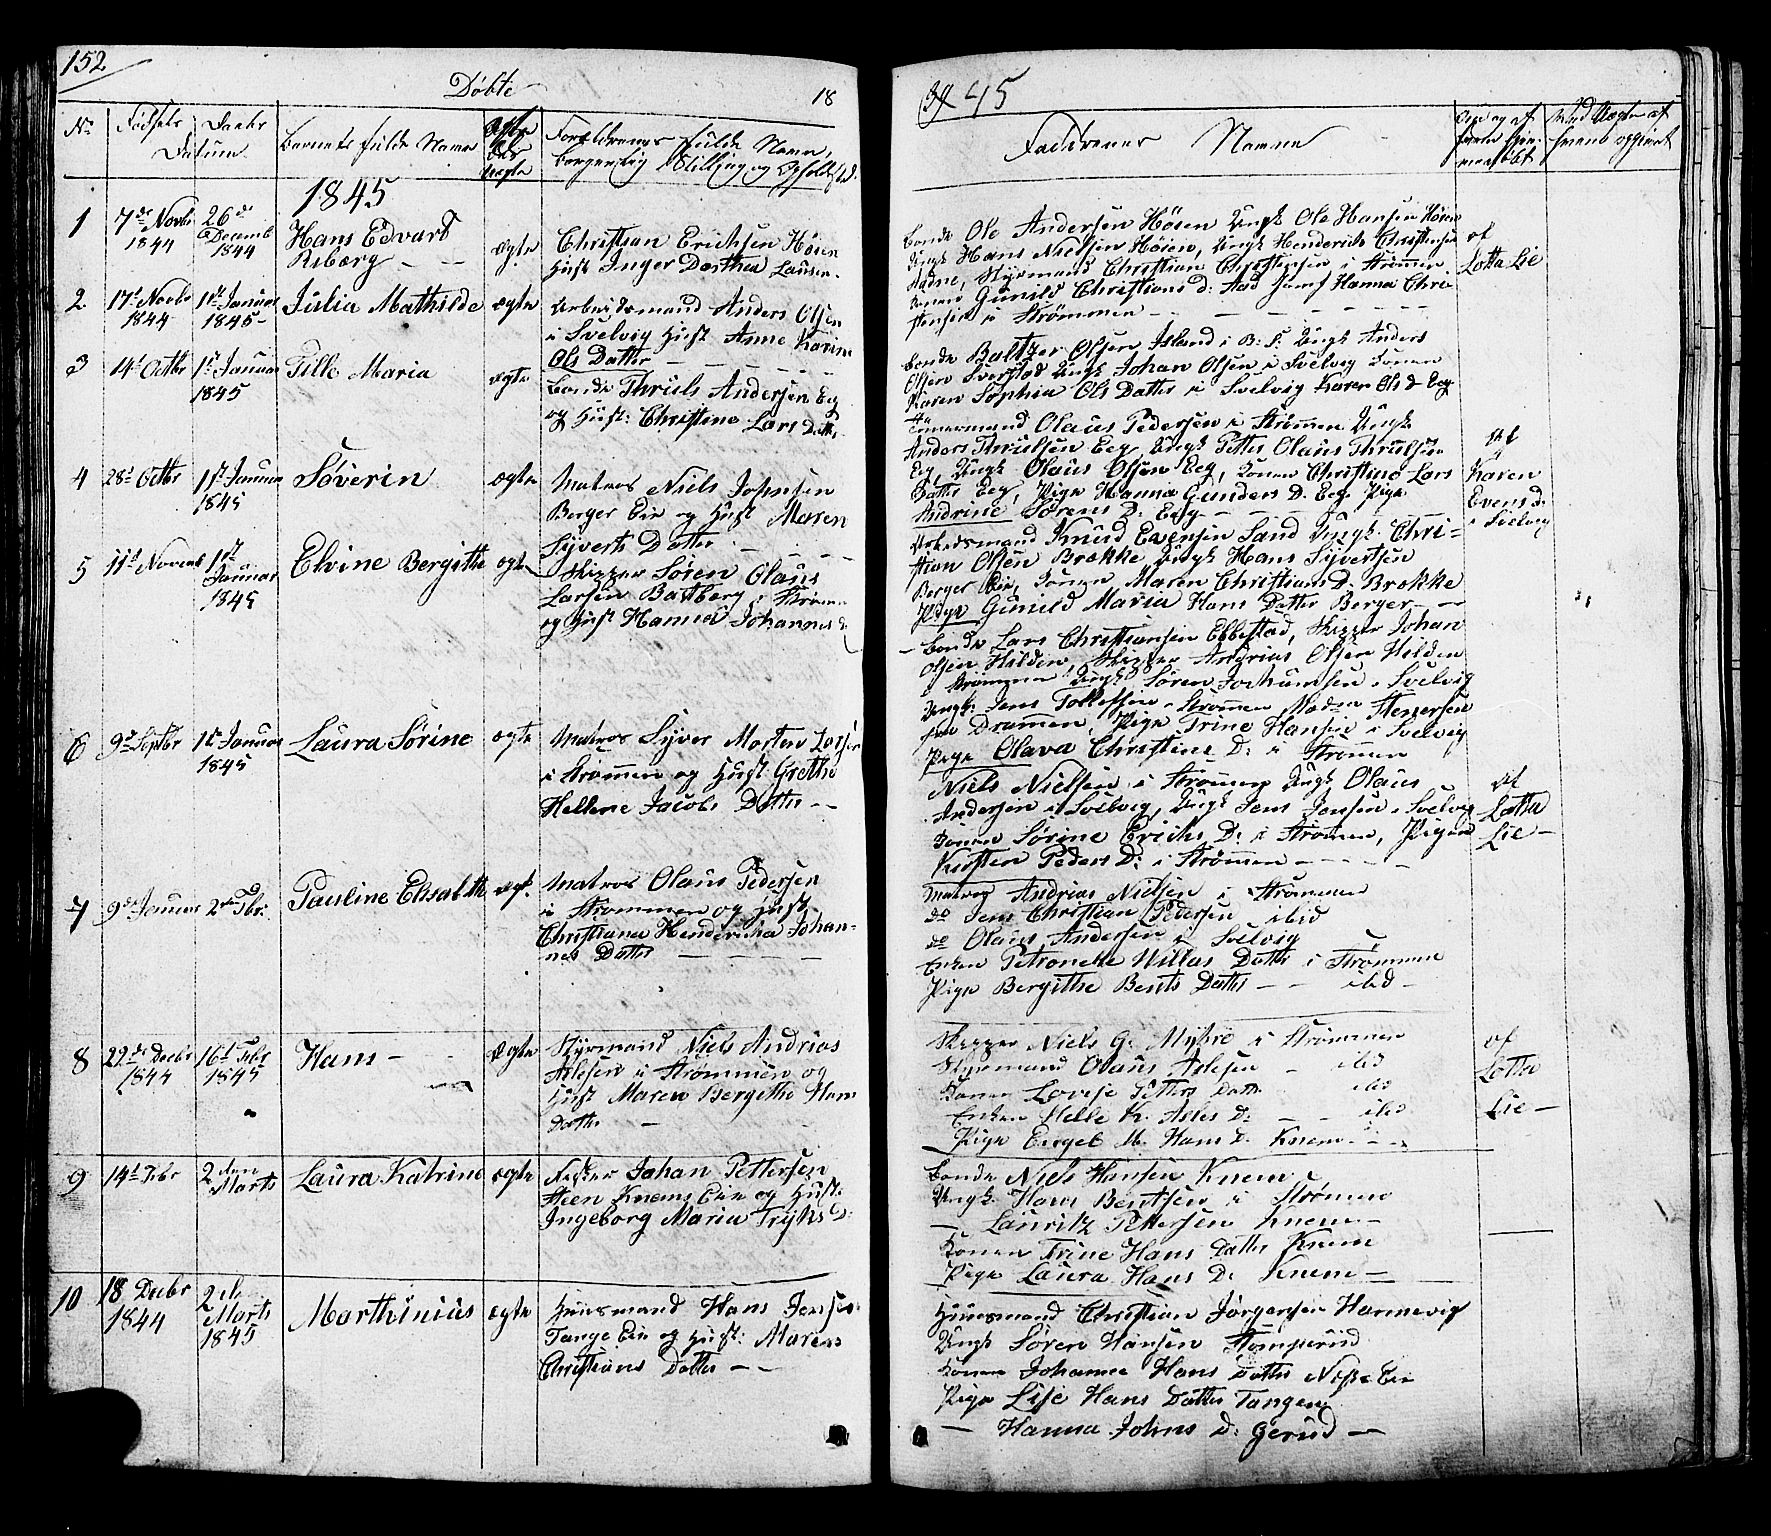 152
Döbte
18
No
Fødsels
Daabs
Datum
Barnets fulde Navn
Ægte
eller
uægte
Forældrenes fulde Navn,
borgerlig Stilling og Opholdsted.
1845
1
7de Novbr
1844
26de
Decemb
1844
Hans Edvard
ægte
Christian Erichsen Höien
Hust Inger Dorthea Laursen
2
17d Novbr
1844
1st Januar
1845
Julia Mathilde
ægte
Arbeidsmand Anders Olsen
i Svelvig Hust Anne Karine
Ols Datter
3
14d Octbr
1st Januar
1845
Tille Maria
ægte
Bonde Thruls Andersen Eeg
og Hust: Christine Lars Datter
4
28d Octbr
1st Januar
1845
Søverin
ægte
Matros Niels Johnsen
Berger Eie og Hust Maren
Syverts Datter
5
11d Novemb
1st
Januar
1845
Elvine Bergithe
ægte
Skipper Søren Olaus
Larsen Batberg i Strømm
og Hust Hanna Johannes d
6
9d Septbr
1st Januar
1845
Laura Sørine
ægte
Matros Syver Morten Larsen
i Strømmen og Hust Grethe
Hellene Jacobs Datter
7
9d Januar
2den Fbr.
Pauline Elisabeth
ægt.
Matros Olaus Pedersen
i Strømmen og Hust.
Christiana Henderikha Johan-
nes Datter
8
22de Decbr
1844
16d Febr
1845
Hans
ægte
Styrmand Niels Andrias
Aslesen i Strømmen og
Hust Maren Bergithe Hans
Datter
9
14d Febr
2den
Marts
Laura Katrine
ægte
Johan Pettersen
Knems Eie og Hust:
Ingeborg Maria Tryks D:
10
18 Decbr
1844
2d
Marts
1845
Marthinius
ægte
Huusmand Hans Jensen
Tange Eie og Hust: Maren
Christians Datter
45
Faddrenes Navne
Bonde Ole Andersen Höien Ungk Ole Hansen Höien
Ungk Hans Nielsen Höien, Ungk Henderick Christensen
Styrmand Christian Christensen i Strømen
Konen Gunild Christians D: Aad Jomf Hanna Chri-
stensen i Strømmen
af
Lotta Lie
Bonde Baltzer Olsen Island i B. S. Ungk Anders
Olsen Sverstad Ungk Johan Olsen i Svelvig Konen
Karen Sophia Ols Datter i Svelvig Karen Ols d Eeg
Tømermand Olaus Pedersen i Strømmen Ungk
Anders Thrulsen Eeg Ungk Petter Olaus Thrulsen
Eeg, Ungk Olaus Olsen Eeg, Konen Christine Lars
Datter Eeg, Pige Hanna Gunders D. Eeg Pige
Andrine Sørens D: Eeg
Af
Karen
Evens D.
i Svelvig
Arbeidsmand Knud Evensen Sand Ungk Chri-
stian Olsen Brekke Ungk Hans Syvertsen
Berger Eie, Konen Maren Christians D. Brekke
Pige Gunild Maria Hans Datter Berger
Bonde Lars Christiansen Ebbestad, Skipper Johan
Olsen Hilden, Skipper Andrias Olsen Hilden
i Strømmen Ungk Søren Johansen i Svelvig
Ungk: Jens Tollefsen i Strømmen Madm Stenersen
fra Drammen, Pige Trine Hansen i Svelvig
Pige Olava Christens D: i Strømmen
Niels Nielsen i Strømmen Ungk Olaus
Andersen i Svelvig, Ungk Jens Jensen i Svelvig
Konen Sørine Erichs D: i Strømmen, Pigen
Kirsten Peders D: i Strømmen
af
Lotta
Lie
Matros Andrias Nielsen i Strømmen
do Jens Christian Pedersen ibid
do Olaus Andersen i Svelvig
Enken Petronelle Willas Datter i Strømmen
Pige Bergithe Bents Datter ibid
Skipper Niels G. Myhre i Strømmen
Styrmand Olaus Aslesen ibid
Konen Lovise Petters Datt ibid
Enken Helle K. Asles D: ibid
Pige Engel M. Hans D. Knem
af
Lotta
Lie
Bonde Niels Hansen Knem
Ungk. Hans Bentsen i Strømen
Lauritz Pettersen Knem
Konen Trine Hans Datter Knem
Pige Laura Hans D: Knem
Huusmand Christian Jørgensen Harmevig
Ungk Søren Hansen Stomperud
Konen Johanne Hans Datter Eie
Pige Lise Hans Datter Tangen
Hanna Johns D. Gerud